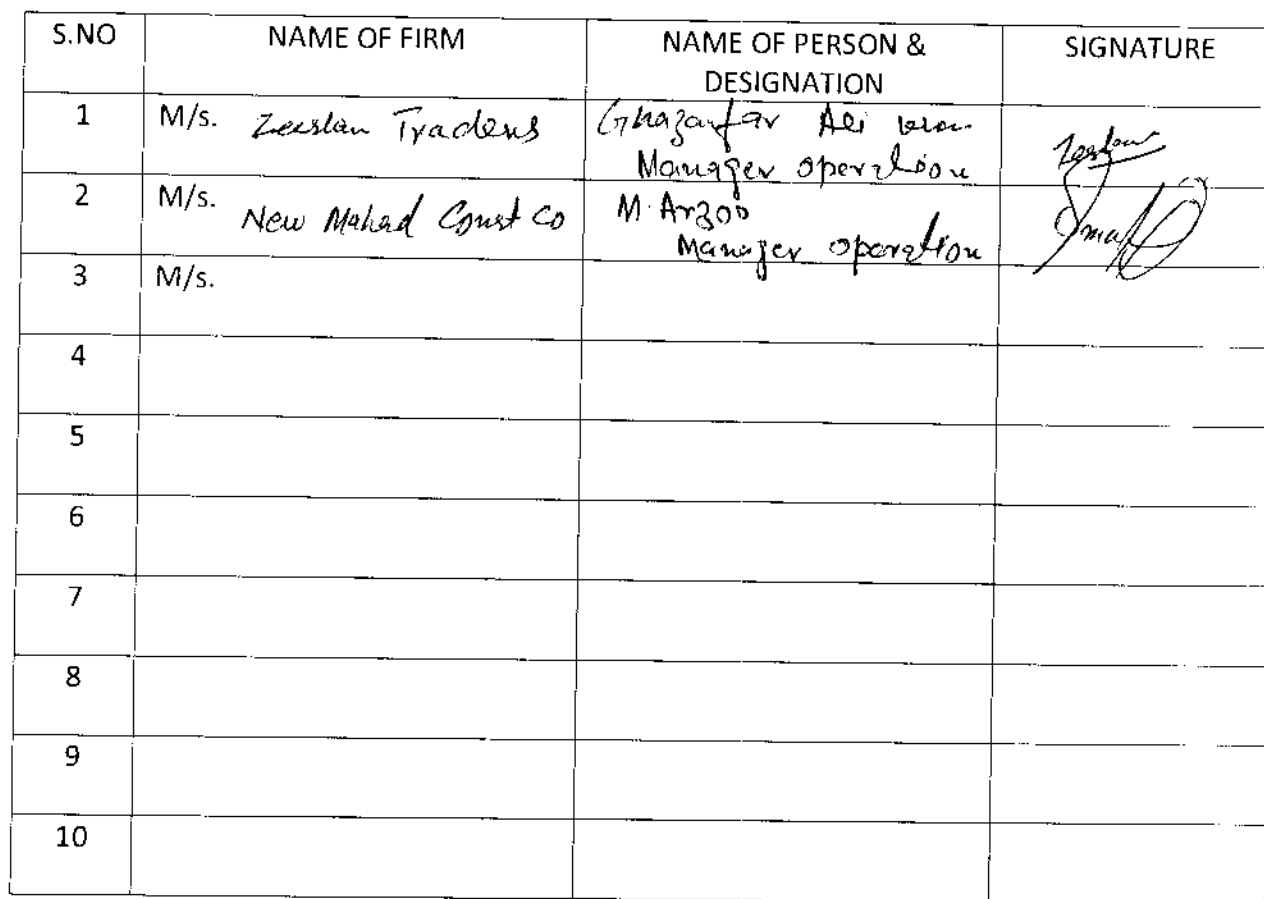 S.NO NAME OF FIRM NAME OF PERSON & SIGNATURE
DESIGNATION
1 M/s. Zeeshan Traders Ghazanfar Ali
Manager operation
2 M/s. New Mahad Const Co M. Arzoo
Manager operation
3 M/s.
4
5
6
7
8
9
10